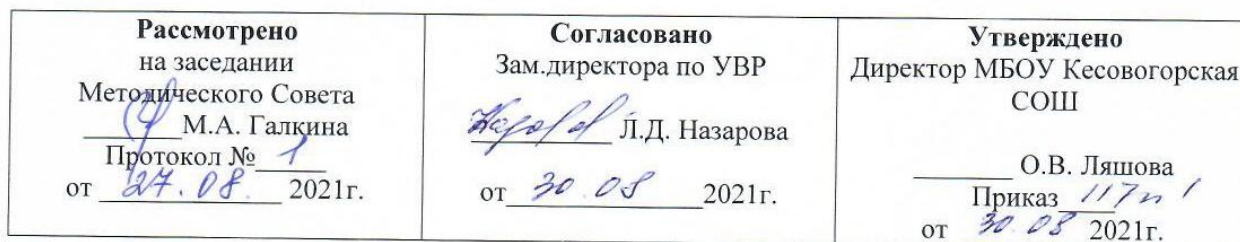 Рассмотрено
на заседании
Методического Совета
М.А. Галкина
Протокол № 1
от 27.08. 2021г.
Согласовано
Зам.директора по УВР
Л.Д. Назарова
от 30.08 2021г.
Утверждено
Директор МБОУ Кесовогорская
СОШ
О.В. Ляшова
Приказ
от 30.08 2021г.